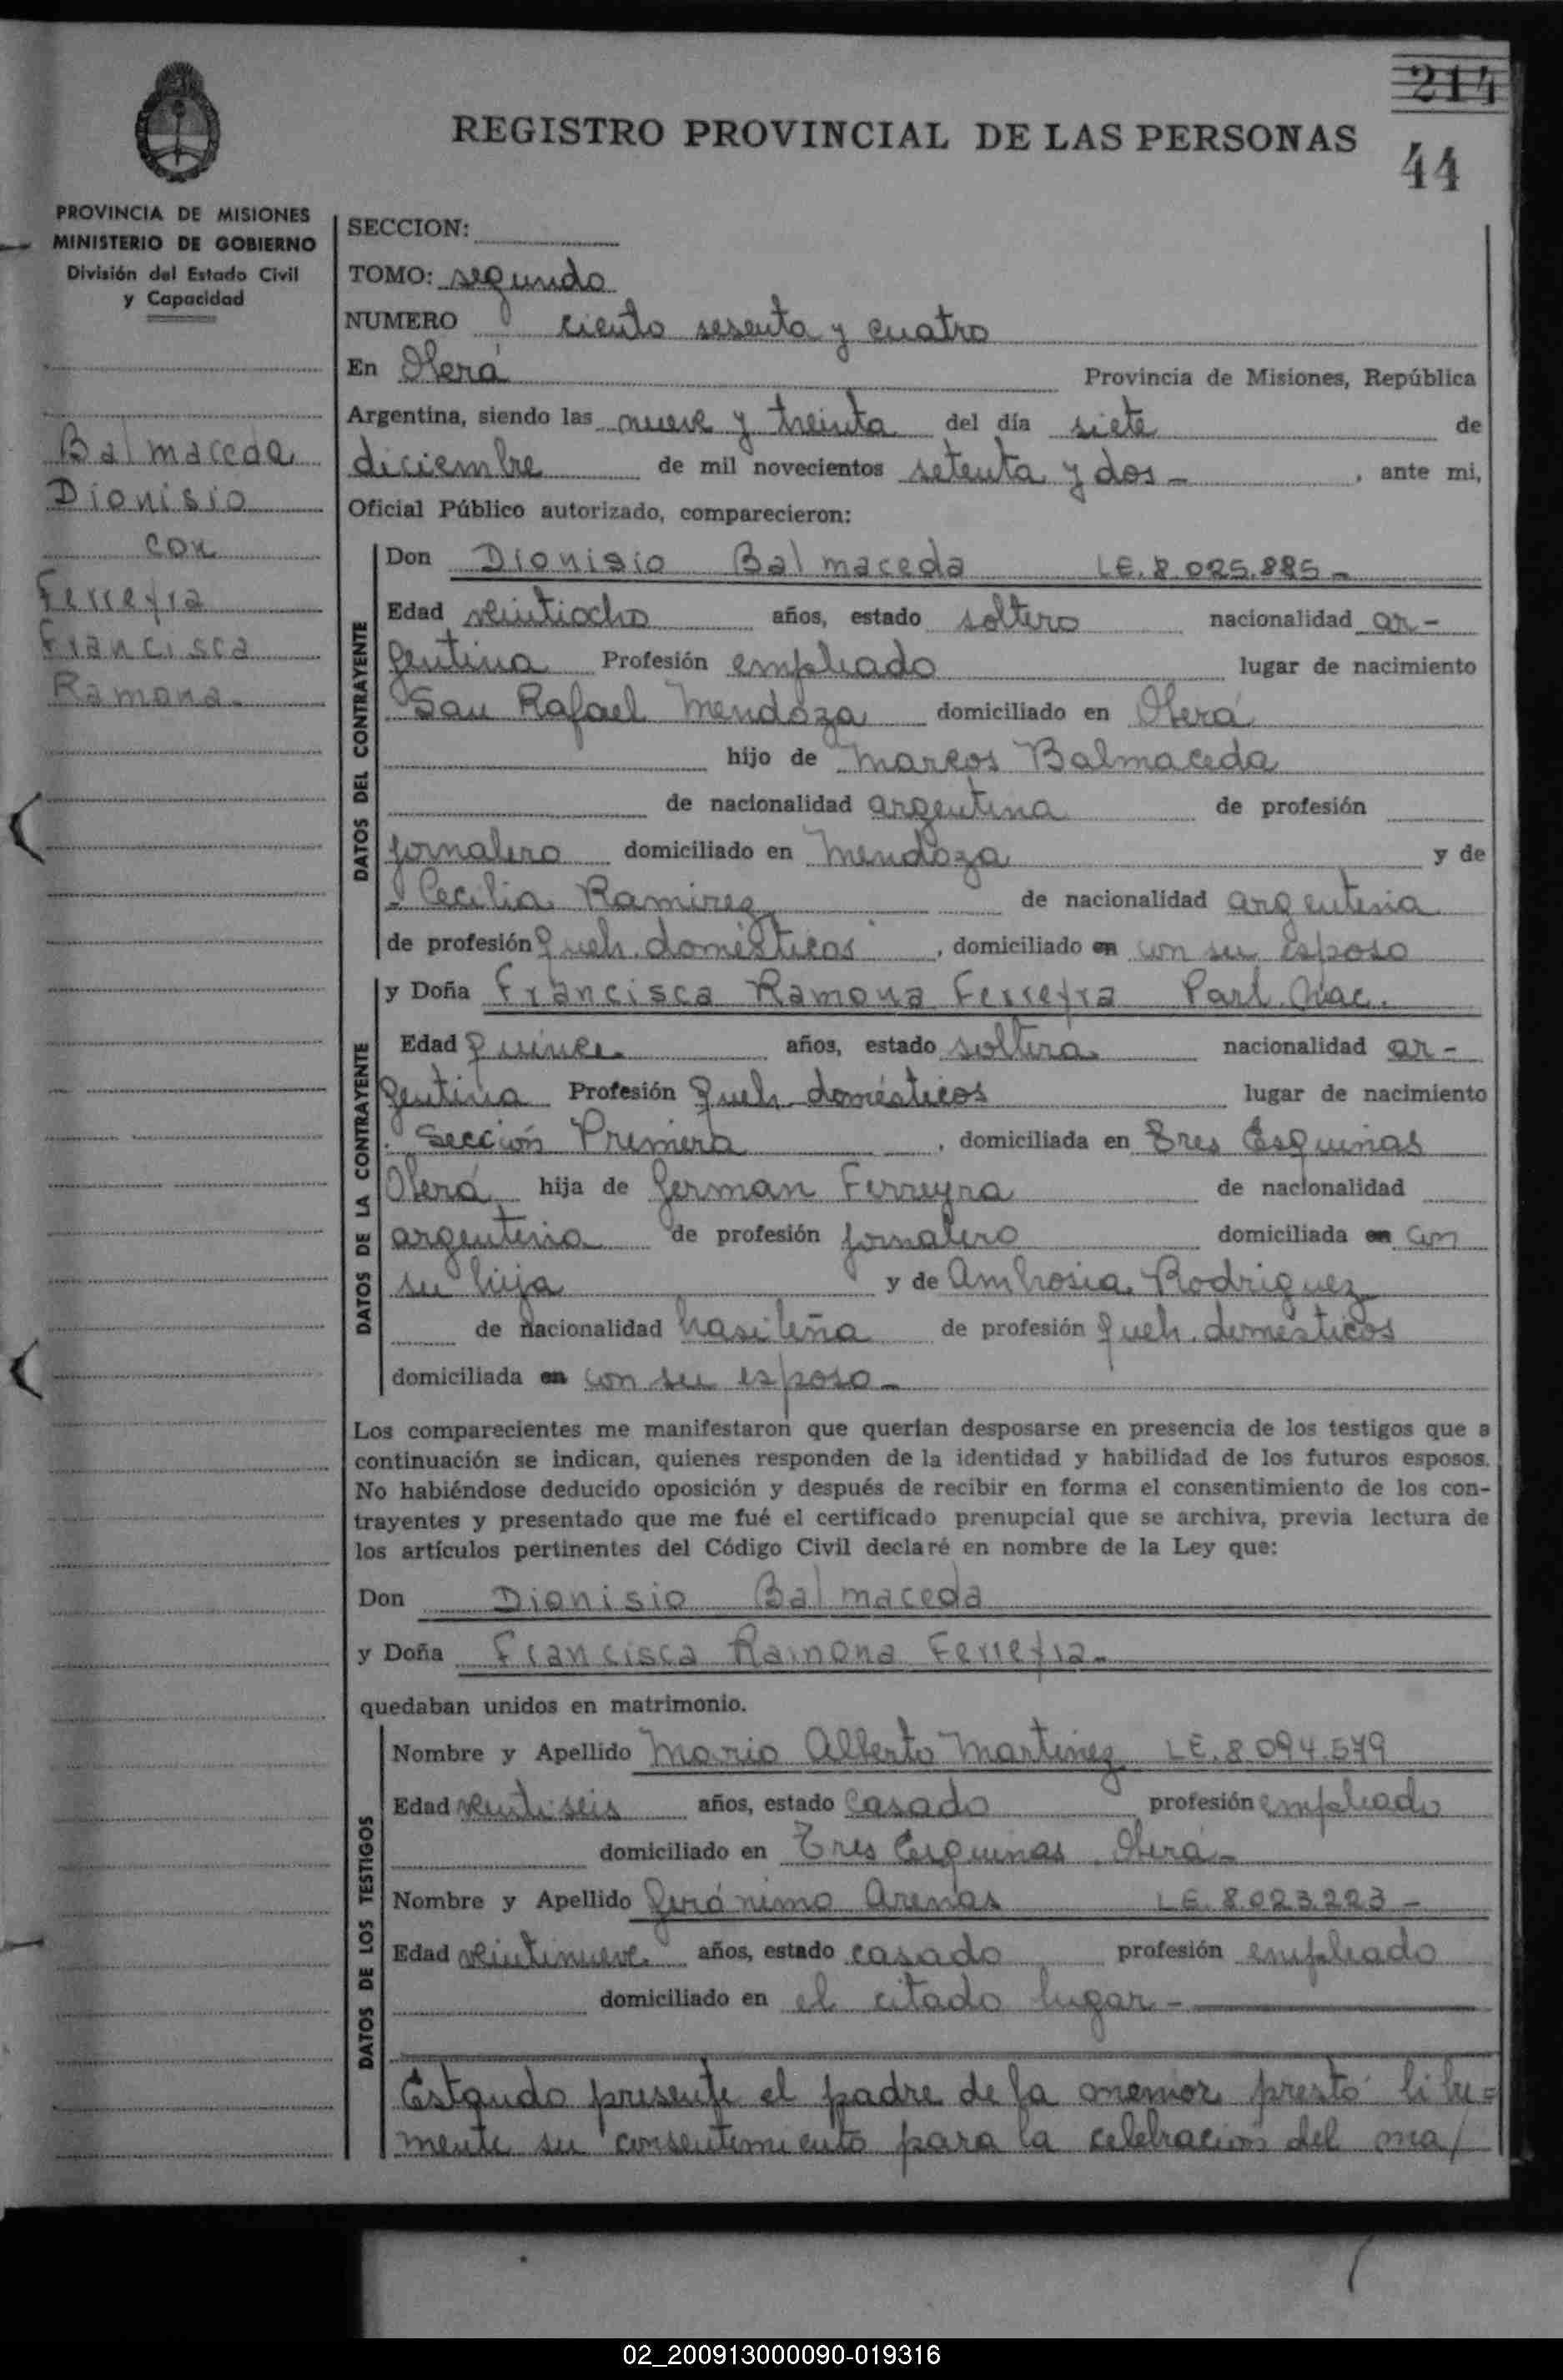 214
REGISTRO PROVINCIAL DE LAS PERSONAS
44
PROVINCIA DE MISIONES
MINISTERIO DE GOBIERNO
División del Estado Civil
y Capacidad
Balmaceda
Dionisio
con
Ferreyra
Francisca
Ramona.
SECCION:
TOMO: segundo
NUMERO ciento sesenta y cuatro
En Oberá Provincia de Misiones, República
Argentina, siendo las nueve y treinta del día siete de
diciembre de mil novecientos setenta y dos - , ante mi,
Oficial Público autorizado, comparecieron:
DATOS DEL CONTRAYENTE
Don Dionisio Balmaceda LE. 8.025.885 -
Edad veintiocho años, estado soltero nacionalidad ar-
gentina Profesión empleado lugar de nacimiento
San Rafael Mendoza domiciliado en Oberá
hijo de Marcos Balmaceda
de nacionalidad argentina de profesión
jornalero domiciliado en Mendoza y de
Cecilia Ramirez de nacionalidad argentina
de profesión queh. domésticos , domiciliado en con su esposo
DATOS DE LA CONTRAYENTE
y Doña Francisca Ramona Ferreyra Part. Nac.
Edad quince años, estado soltera nacionalidad ar-
gentina Profesión queh. domésticos lugar de nacimiento
Sección Primera , domiciliada en Tres Esquinas
Oberá hija de German Ferreyra de nacionalidad
argentina de profesión jornalero domiciliada en con
su hija y de Ambrosia Rodriguez
de nacionalidad brasileña de profesión queh. domésticos
domiciliada en con su esposo -
Los comparecientes me manifestaron que querían desposarse en presencia de los testigos que a
continuación se indican, quienes responden de la identidad y habilidad de los futuros esposos.
No habiéndose deducido oposición y después de recibir en forma el consentimiento de los con-
trayentes y presentado que me fué el certificado prenupcial que se archiva, previa lectura de
los artículos pertinentes del Código Civil declaré en nombre de la Ley que:
Don Dionisio Balmaceda
y Doña Francisca Ramona Ferreyra -
quedaban unidos en matrimonio.
DATOS DE LOS TESTIGOS
Nombre y Apellido Mario Alberto Martinez LE. 8.094.579
Edad veintiseis años, estado casado profesión empleado
domiciliado en Tres Esquinas Oberá -
Nombre y Apellido Gerónimo Arenas LE. 8.023.223 -
Edad veintinueve años, estado casado profesión empleado
domiciliado en el citado lugar -
Estando presente el padre de la menor prestó libre=
mente su consentimiento para la celebracion del ma/
02_200913000090-019316